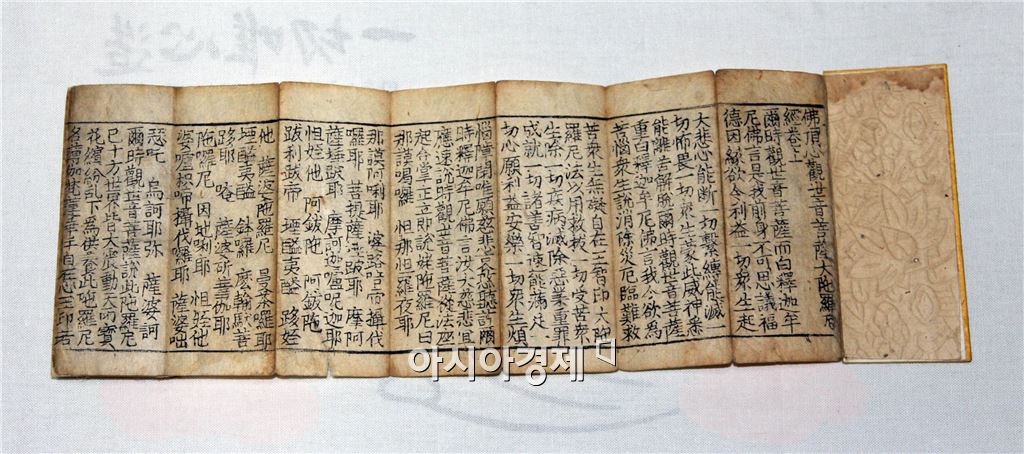 一切唯心造
佛頂心觀世音菩薩大陀羅尼
經卷上
爾時觀世音菩薩而白釋迦牟
尼佛言是我前身不可思議福
德因緣欲令利益一切衆生起
大悲心能斷一切繫縛能滅一
切怖畏一切衆生蒙此威神悉
能離苦解脫爾時觀世音菩薩
重白釋迦牟尼佛言我今欲爲
苦惱衆生說消除災厄臨難救
苦衆生無礙自在王智印大陀
羅尼法以用救拔一切受苦衆
生除一切疾病滅除惡業重罪
成就一切諸善種智速能滿足
一切心願利益安樂一切衆生煩
惱障閉唯願慈悲哀愍聽許爾
時釋迦牟尼佛言汝大慈悲宜
應速說時觀世音菩薩從法座
起合掌正立即說姥陀羅尼曰
那謨喝囉 怛那怛囉夜耶
那謨阿唎耶 婆路吉帝攝伐
囉耶 菩提薩埵跛耶 摩訶
薩埵跛耶 摩訶迦嚧呢迦耶
怛姪他 阿鈸陀 阿鈸陀
跋利跋帝 堙醯夷醯 跢姪
他 薩婆陀羅尼 曼茶囉耶
堙醯夷醯 鉢囉 麽輸馱菩
跢耶 唵 薩婆斫蒭伽耶
陀囉尼 因地唎耶 怛姪他
婆嚧枳帝攝伐囉耶 薩婆咄
瑟吒 烏訶耶弥 薩婆訶
爾時觀世音菩薩說此陀羅尼
已十方世界皆大震動天雨寶
花繽紛乱下爲供養此陀羅尼
名薄伽梵蓮華手自在心王印若
아시아경제